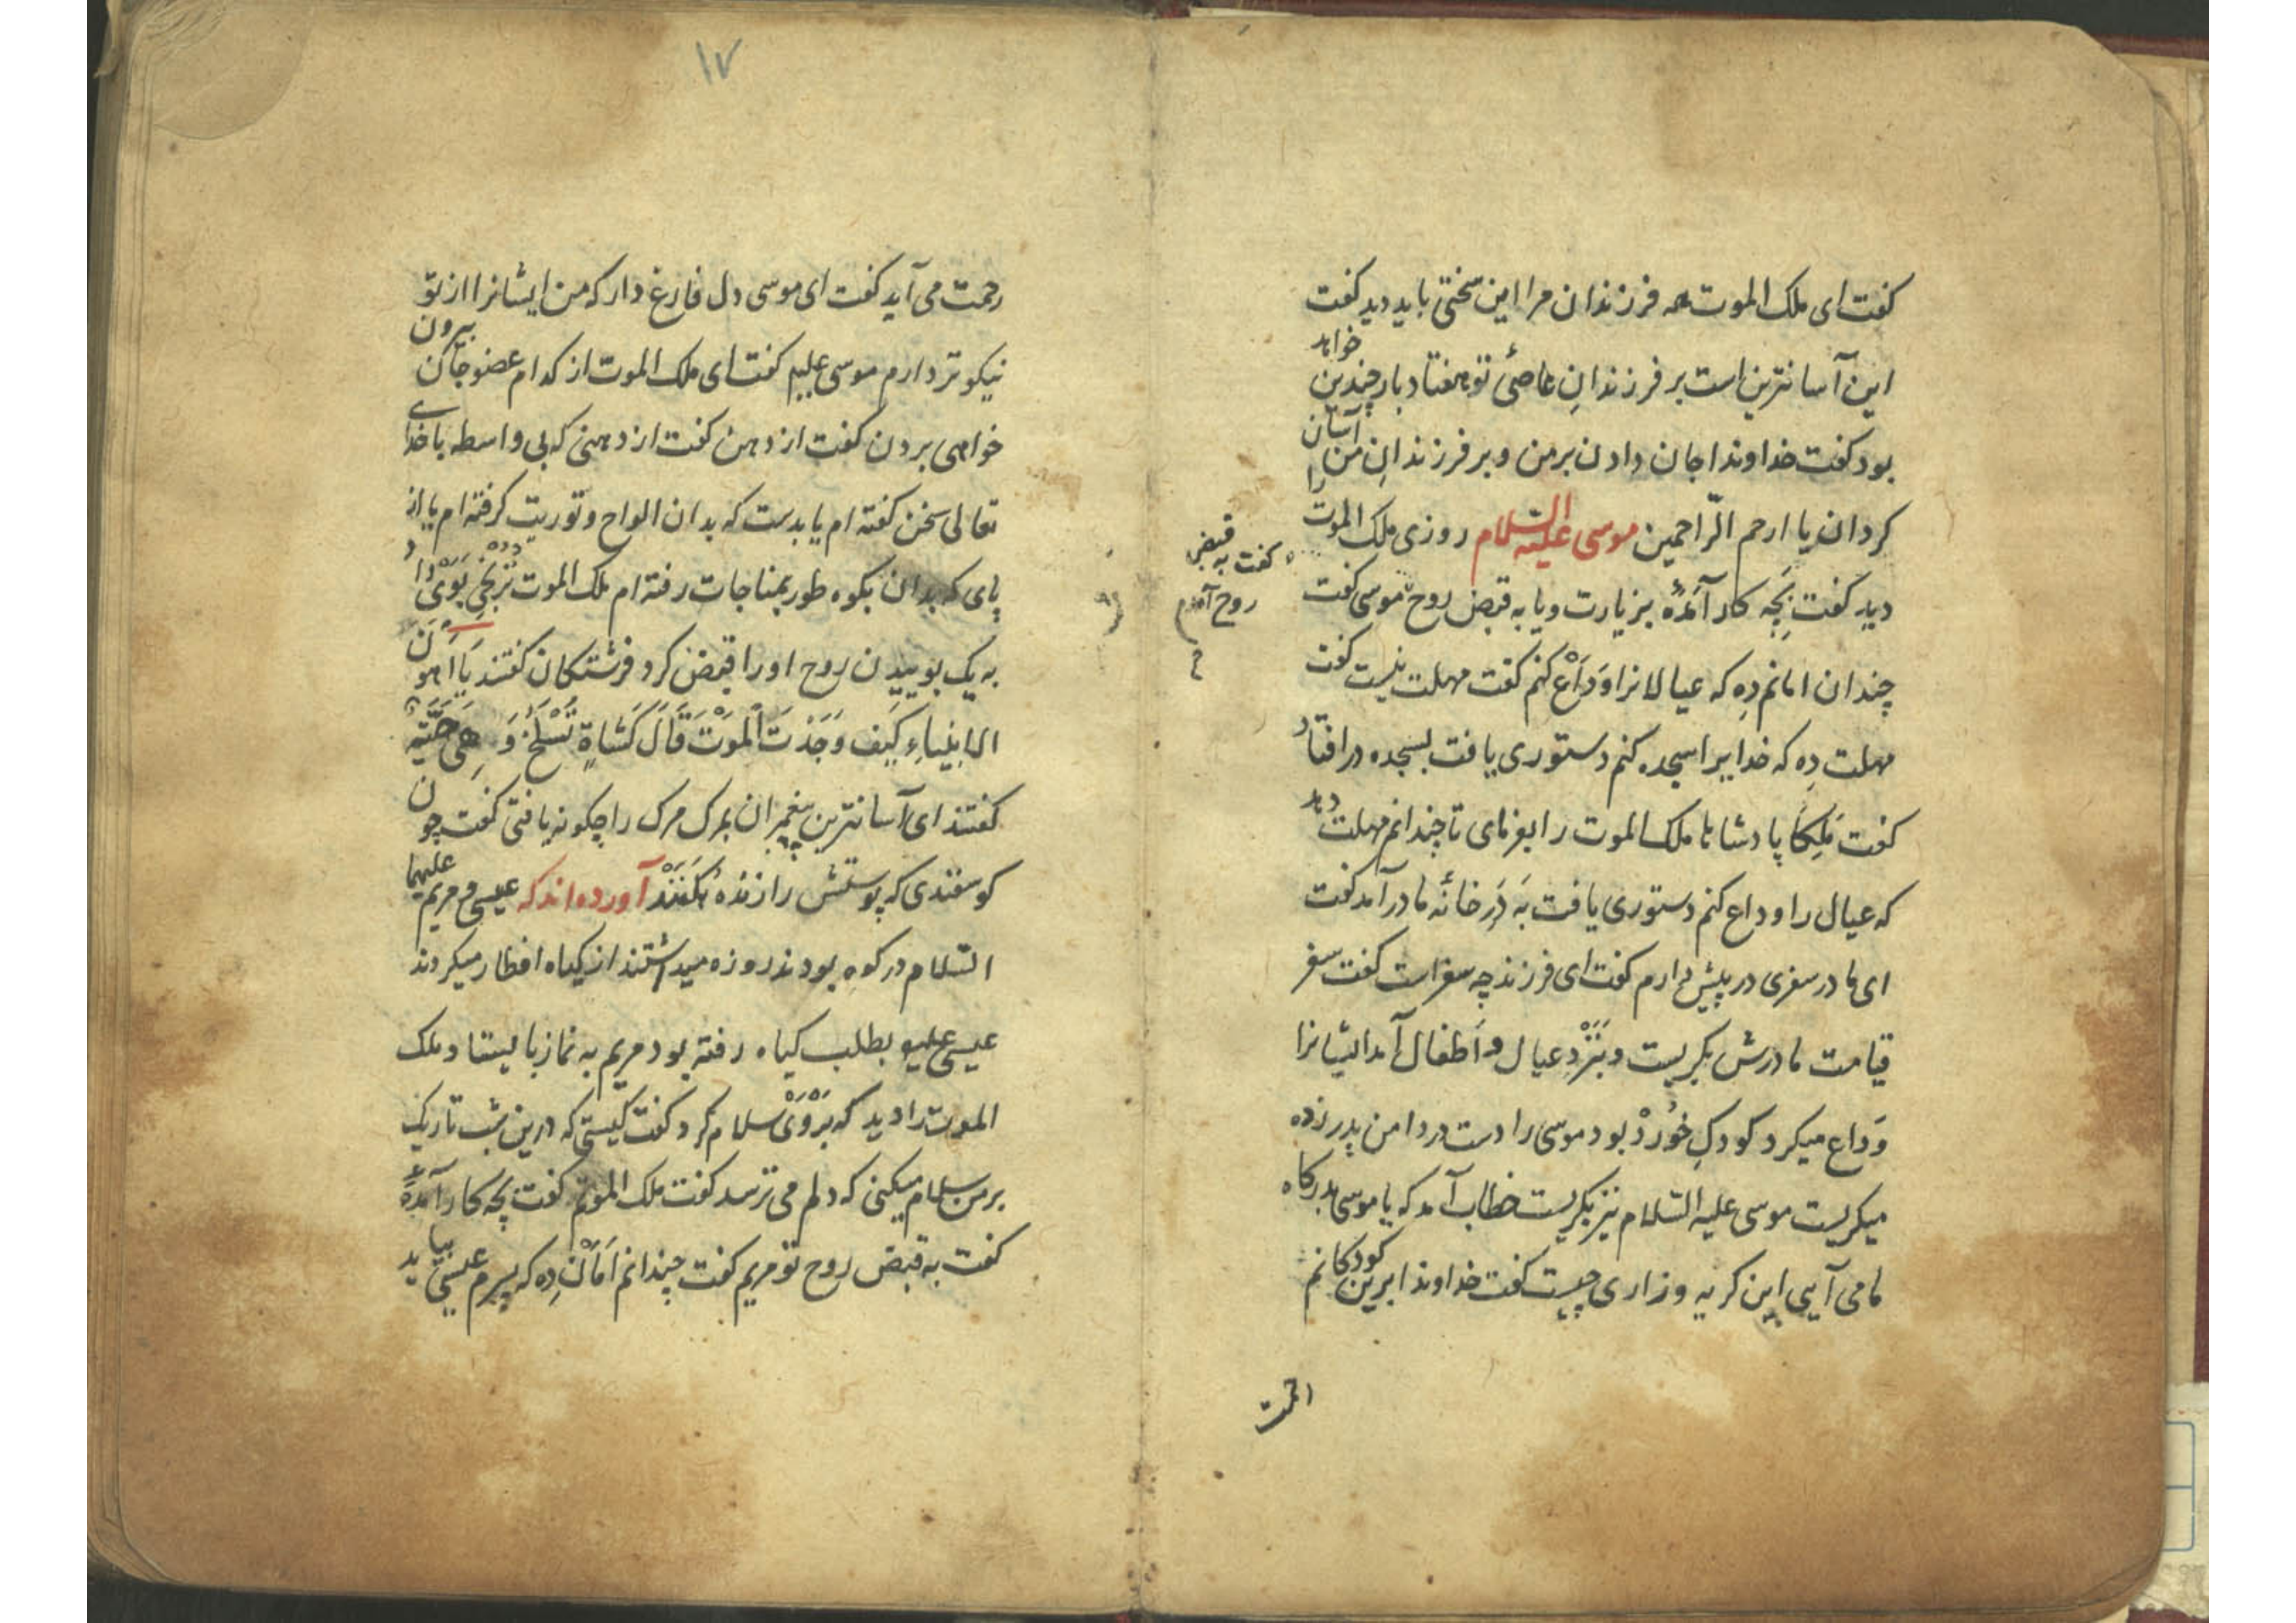 کفت ای ملک الموت همه فرزندان مرا این سختی باید دید کفت
این آسانترین است بر فرزندانِ عاصئ تو هفتاد بار چندین خواهد
بود کفت خداوندا جان دادن بر من و بر فرزندانِ من آسان
کردان یا ارحم الرّاحمین موسی علیه السلام روزی ملک الموت را
دید کفت بَچِه کار آمدهٔ بزیارت و یا به قبض روح موسی کفت
کفت به قبض
روح آمدم
چندان امانم دِه که عیالانرا وَدَاْع کنم کفت مهلت نیست کفت
مهلت دِه که خدایرا سجده کنم دستوری یافت بسجده درافتاد
کفت مَلِکَا پادشاها ملک الموت را بفرمای تا چندانم مهلت دهد
که عیال را وداع کنم دستوری یافت بَه دَرِ خانهٔ مادر آمد کفت
ای مادر سفری در پیش دارم کفت ای فرزند چه سفر است کفت سفر
قیامت مادرش بکریست و بَنَزْدِ عیال و اَطفال آمد ایشانرا
وَداع میکرد کودکِ خُورْدْ بود موسی را دست در دامن پدر زده
میکریست موسی علیه السّلام نیز بکریست خطاب آمد که یا موسی بدرکاه
ما می آیی این کریه و زاری چیست کفت خداوندا برین کودکانم
رحمت
۱۷
رحمت می آید کفت ای موسی دل فارغ دار که من ایشانرا از تو
نیکوتر دارم موسی علیه کفت ای ملک الموت از کدام عضو جان بیرون
خواهی بردن کفت از دهن کفت از دهنی که بی واسطه با خدای
تعالی سخن کفته ام یا بدست که بدان الواح و توریت کرفته ام یا از
پای که بدان بکوه طور بمناجات رفته ام ملک الموت تُرنْجِی بَوَیْ داد
به یک بوییدن روح او را قبض کرد فرشتکان کفتند یَا اَهون
الانبْیاءِ کَیفَ وَجَدْتَ الْمَوْتَ قَالَ کَشَاةٍ تُسْلَخُ وَ هِیَ حَیَّةٌ
کفتند ای آسانترین پیغمبران بمرک مرک را چکونه یافتی کفت چون
کوسفندی که پوستش را زنده بکَنَنْد آورده اند که عیسی و مریم علیهما
السّلام در کوه بودند روزه میداشتند از کیاه افطار میکردند
عیسی علیه بطلب کیاه رفته بود مریم به نماز بایستاد ملک
الموت را دید که بَرْوَیْ سلام کرد کفت کیستی که درین شب تاریک
بر من سلام میکنی که دلم می ترسد کفت ملک الموتم کفت بچه کار آمدهٔ
کفت به قبض روح تو مریم کفت چندانم اَمَاْن دِه که پسرم عیسی بیاید